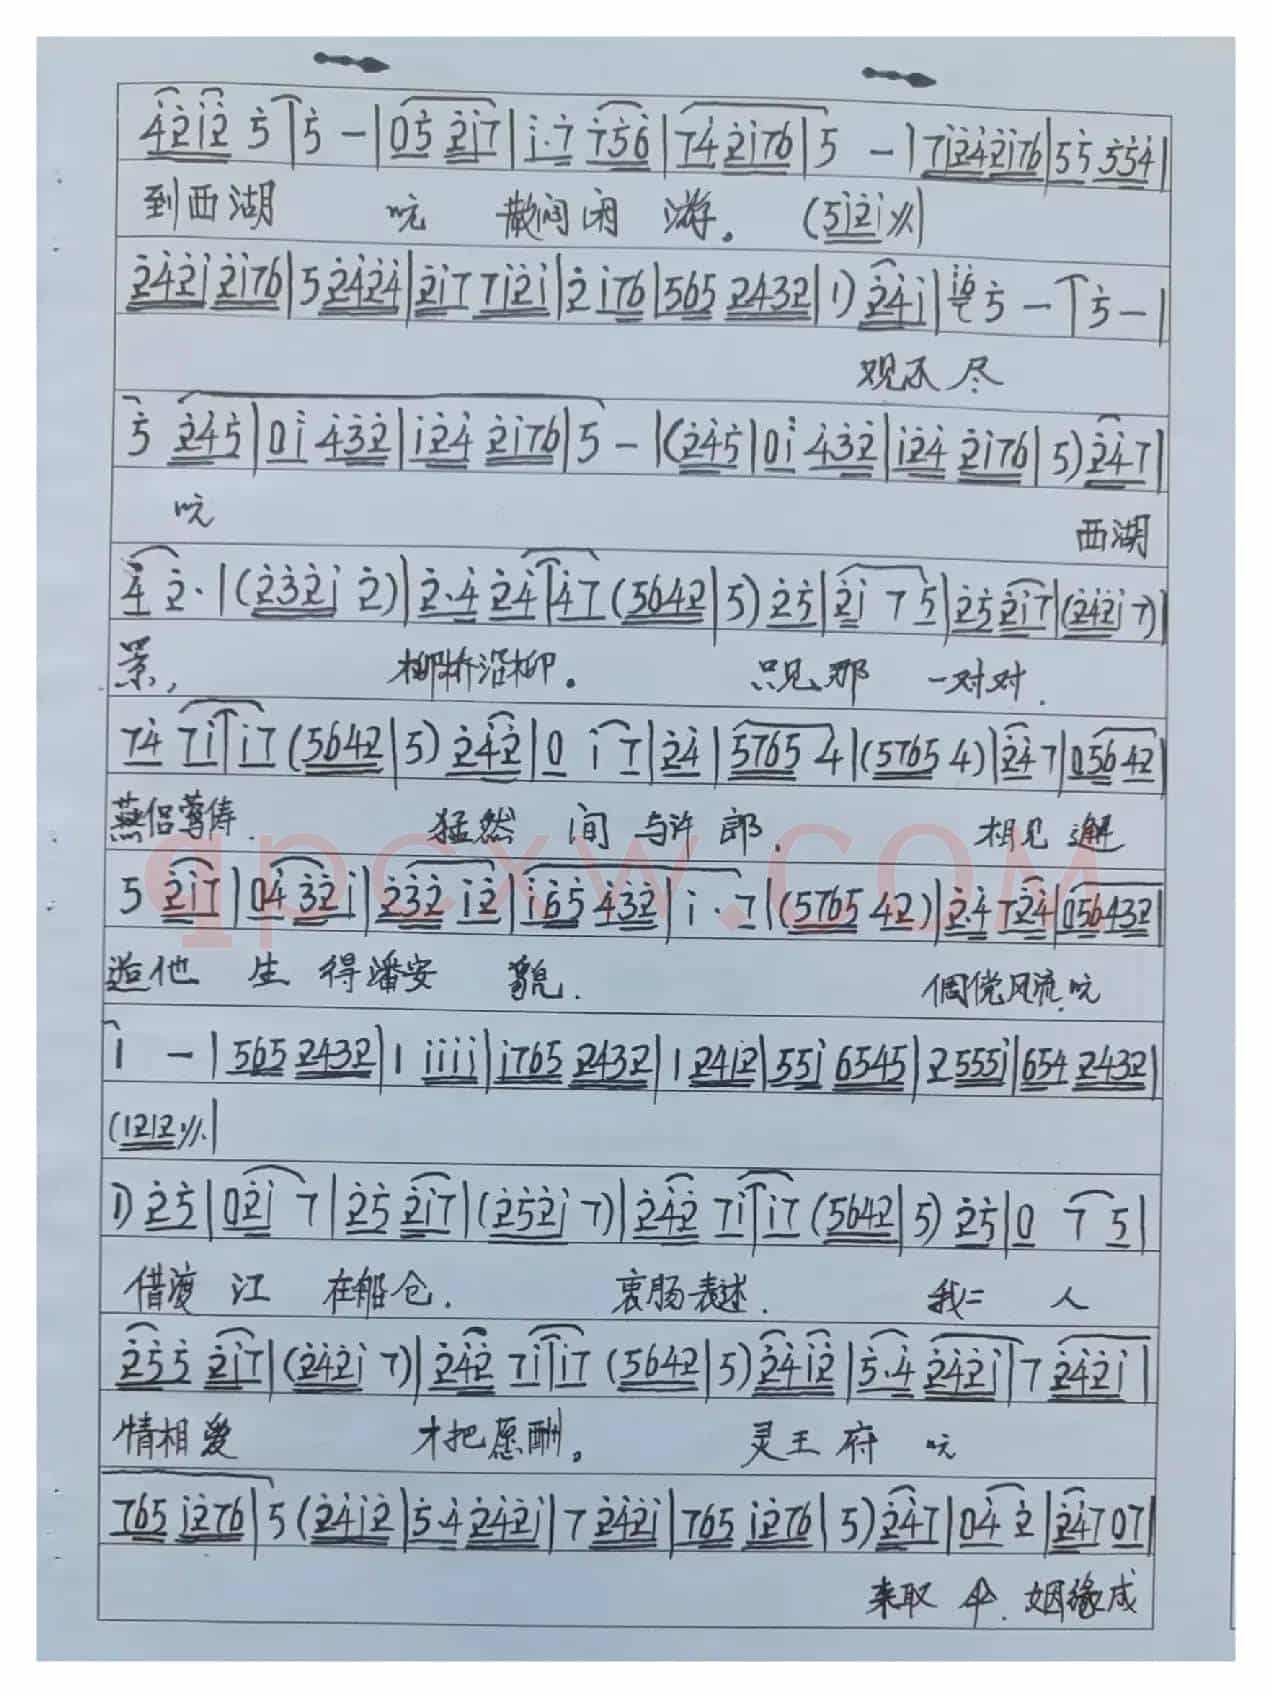 4̇2̇1̇2̇ 5̇ | 5̇ - | 05̇ 2̇1̇7 | 1̇·7 756 | 74̇ 2̇1̇76 | 5 - | 71̇2̇4̇2̇1̇76 | 55 554 |
到西湖 吭 散闷闲 游。 (51̇2̇1̇ 〃)
2̇4̇2̇1̇ 2̇1̇76 | 5 2̇4̇2̇4̇ | 2̇1̇7 71̇2̇1̇ | 2̇ 1̇76 | 565 2432 | 1) 2̇4̇1̇ | 1̇6 5̇ - | 5̇ - |
观不尽
5̇ 2̇4̇5̇ | 01̇ 4̇3̇2̇ | 1̇2̇4̇ 2̇1̇76 | 5 - | (2̇4̇5̇ | 01̇ 4̇3̇2̇ | 1̇2̇4̇ 2̇1̇76 | 5) 2̇4̇7 |
吭 西湖
4̇ 2̇· | (2̇3̇2̇1̇ 2̇) | 2̇·4̇ 2̇4̇ | 4̇7 (5642 | 5) 2̇5̇ | 2̇1̇ 7 5 | 2̇5̇ 2̇1̇7 | (2̇4̇2̇1̇ 7) |
景, 柳桥沿柳。 只见那 一对对.
74̇ 71̇ | 1̇7 (5642 | 5) 2̇4̇2̇ | 0 1̇ 7 | 2̇4̇ | 5765 4 | (5765 4) | 2̇4̇ 7 | 056 42 |
燕侣莺俦. 猛然 间 与许 郎. 相见 邂
5 2̇1̇7 | 04̇ 3̇2̇1̇ | 2̇3̇2̇ 1̇2̇ | 1̇65 4̇3̇2̇ | 1̇·7 | (5765 42) | 2̇·4̇ 72̇4̇ | 056432 |
逅他 生 得潘安 貌. 倜傥风流.吭
1 - | 565 2432 | 1 1̇1̇1̇1̇ | 1̇765 2432 | 1 2412 | 551̇ 6545 | 2 5551̇ | 654 2432 |
(1212 〃.)
1) 2̇5̇ | 02̇1̇ 7 | 2̇5̇ 2̇1̇7 | (2̇5̇2̇1̇ 7) | 2̇4̇2̇ 71̇ | 1̇7 (5642 | 5) 2̇5̇ | 0 7 5 |
借渡 江 在船仓. 衷肠表述. 我二 人
2̇5̇5̇ 2̇1̇7 | (2̇4̇2̇1̇ 7) | 2̇4̇2̇ 71̇ | 1̇7 (5642 | 5) 2̇4̇1̇2̇ | 5̇·4̇ 2̇4̇2̇1̇ | 7 2̇4̇2̇1̇ |
情相爱 才把愿酬。 灵王府 吭
765 1̇2̇76 | 5 (2̇4̇1̇2̇ | 5̇·4̇ 2̇4̇2̇1̇ | 7 2̇4̇2̇1̇ | 765 1̇2̇76 | 5) 2̇4̇7 | 04̇ 2̇ | 2̇4̇7 07 |
来取 伞. 姻缘成
qpcxw.com